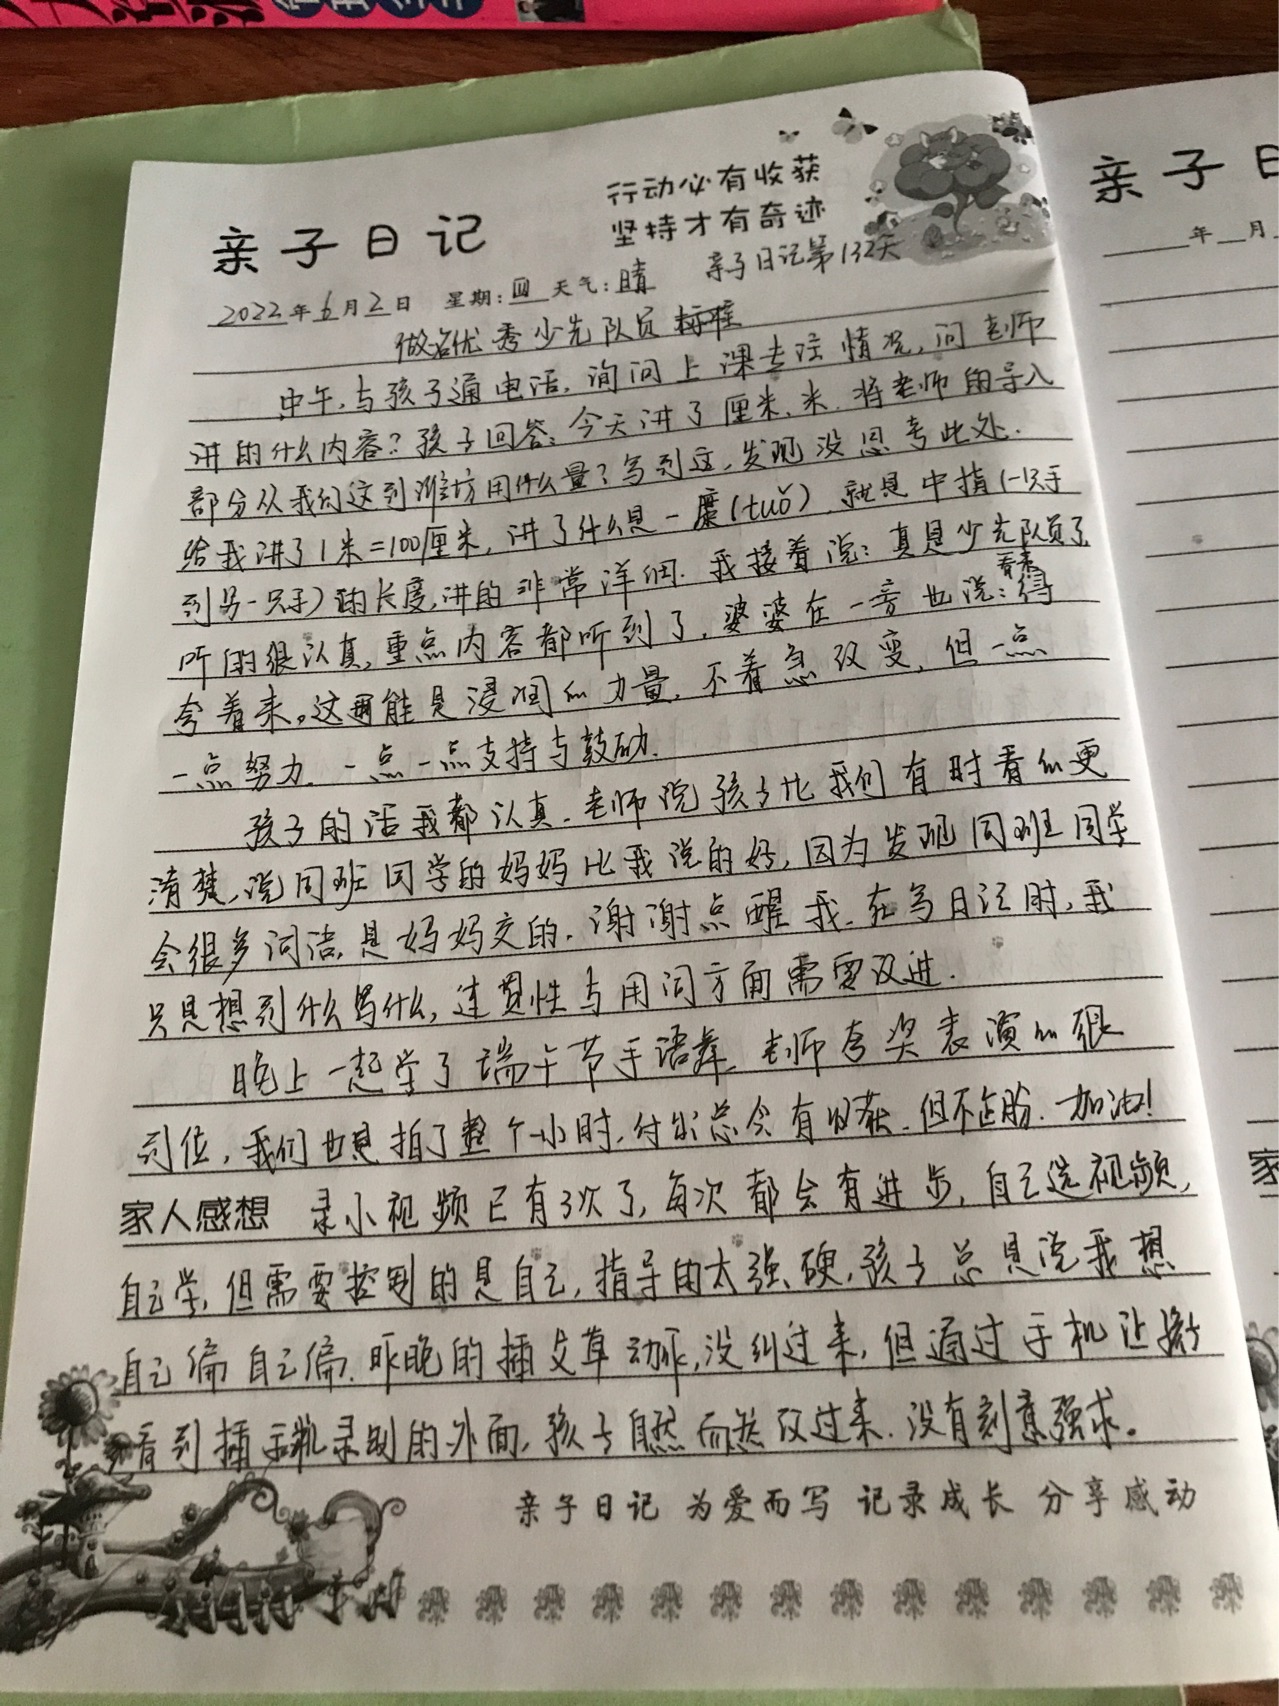 亲子日记
行动必有收获
坚持才有奇迹
亲子日记第132天
2022年6月2日 星期:四 天气:晴
做名优秀少先队员标准
中午,与孩子通电话,询问上课专注情况,问老师
讲的什么内容?孩子回答:今天讲了厘米、米.将老师的导入
部分从我们这到潍坊用什么量?写到这,发现没思考此处.
给我讲了1米=100厘米,讲了什么是一庹(tuǒ),就是中指(一只手
到另一只手)的长度,讲的非常详细.我接着说:真是少先队员了
听的很认真,重点内容都听到了,婆婆在一旁也说:看来得
夸着来。这可能是浸润的力量,不着急改变,但一点
一点努力.一点一点支持与鼓励.
孩子的话我都认真.老师说孩子比我们有时看的更
清楚,说同班同学的妈妈比我说的好,因为发现同班同学
会很多词语,是妈妈交的.谢谢点醒我.在写日记时,我
只是想到什么写什么,连贯性与用词方面需要改进.
晚上一起学了端午节手语舞,老师夸奖表演的很
到位,我们也是拍了整个小时,付出总会有收获.但不企盼.加油!
家人感想 录小视频已有3次了,每次都会有进步,自己选视频,
自己学,但需要控制的是自己,指导的太强硬,孩子总是说我想
自己编自己编.昨晚的插艾草动作,没纠过来,但通过手机让孩子
看到插录制的外面,孩子自然而然改过来.没有刻意强求。
亲子日记 为爱而写 记录成长 分享感动
亲子日
年 月
家